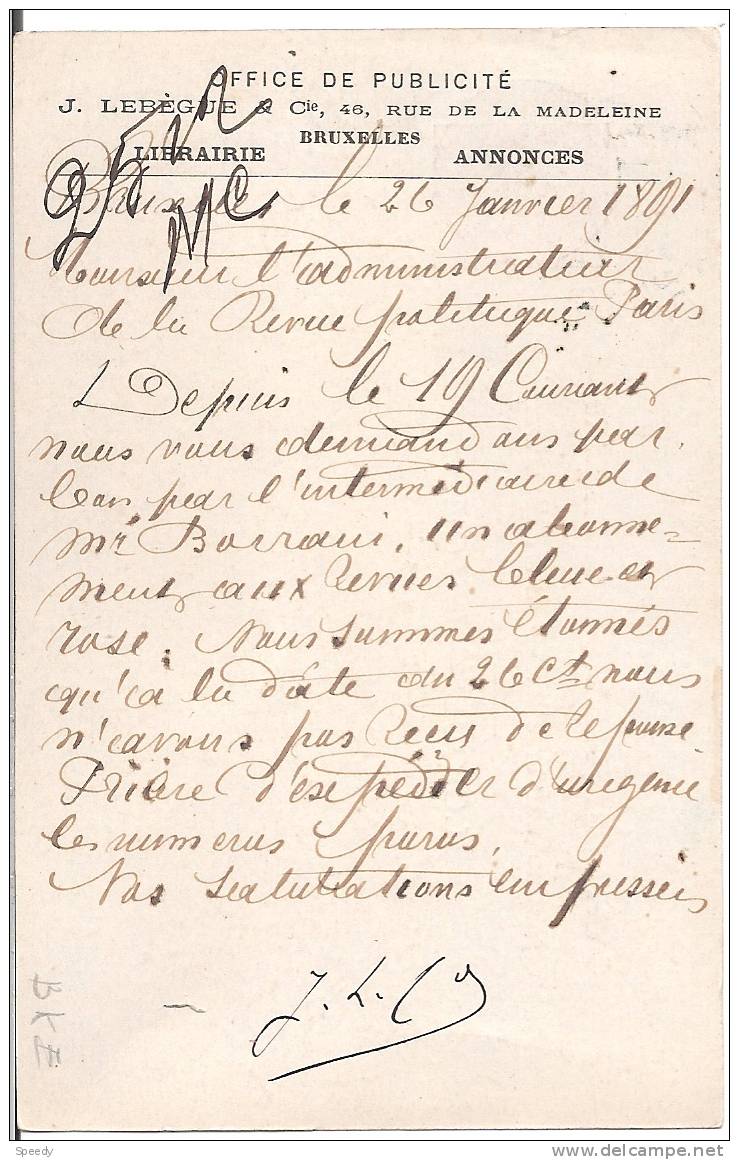 OFFICE DE PUBLICITÉ
J. LEBÈGUE & Cie, 46, RUE DE LA MADELEINE
BRUXELLES
LIBRAIRIE ANNONCES
Bruxelles le 26 Janvier 1891
Monsieur l'administrateur
de la Revue politique Paris
Depuis le 19 Courant
nous vous demandons par
bon par l'intermédiaire de
Mr Borrani, un abonne=
ment aux Revues bleue et
rose. Nous sommes étonnés
qu'à la date du 26 Ct. nous
n'avons pas recu de reponse
Prière d'expédier d'urgence
les numeros parus.
Nos salutations empressées
J. L. Cie
BKE
Speedy
delcampe.net